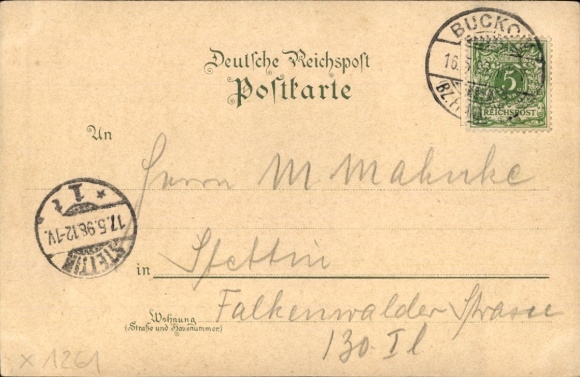 Deutsche Reichspost
Postkarte
BUCKO
16.5
5
REICHSPOST
An
Herrn M Mahnke
1 t
17.5.98.12-1V.
STETTIN
Stettin
in
Falkenwalder Strasse
Wohnung
(Straße und Hausnummer)
130. I l
x 1261